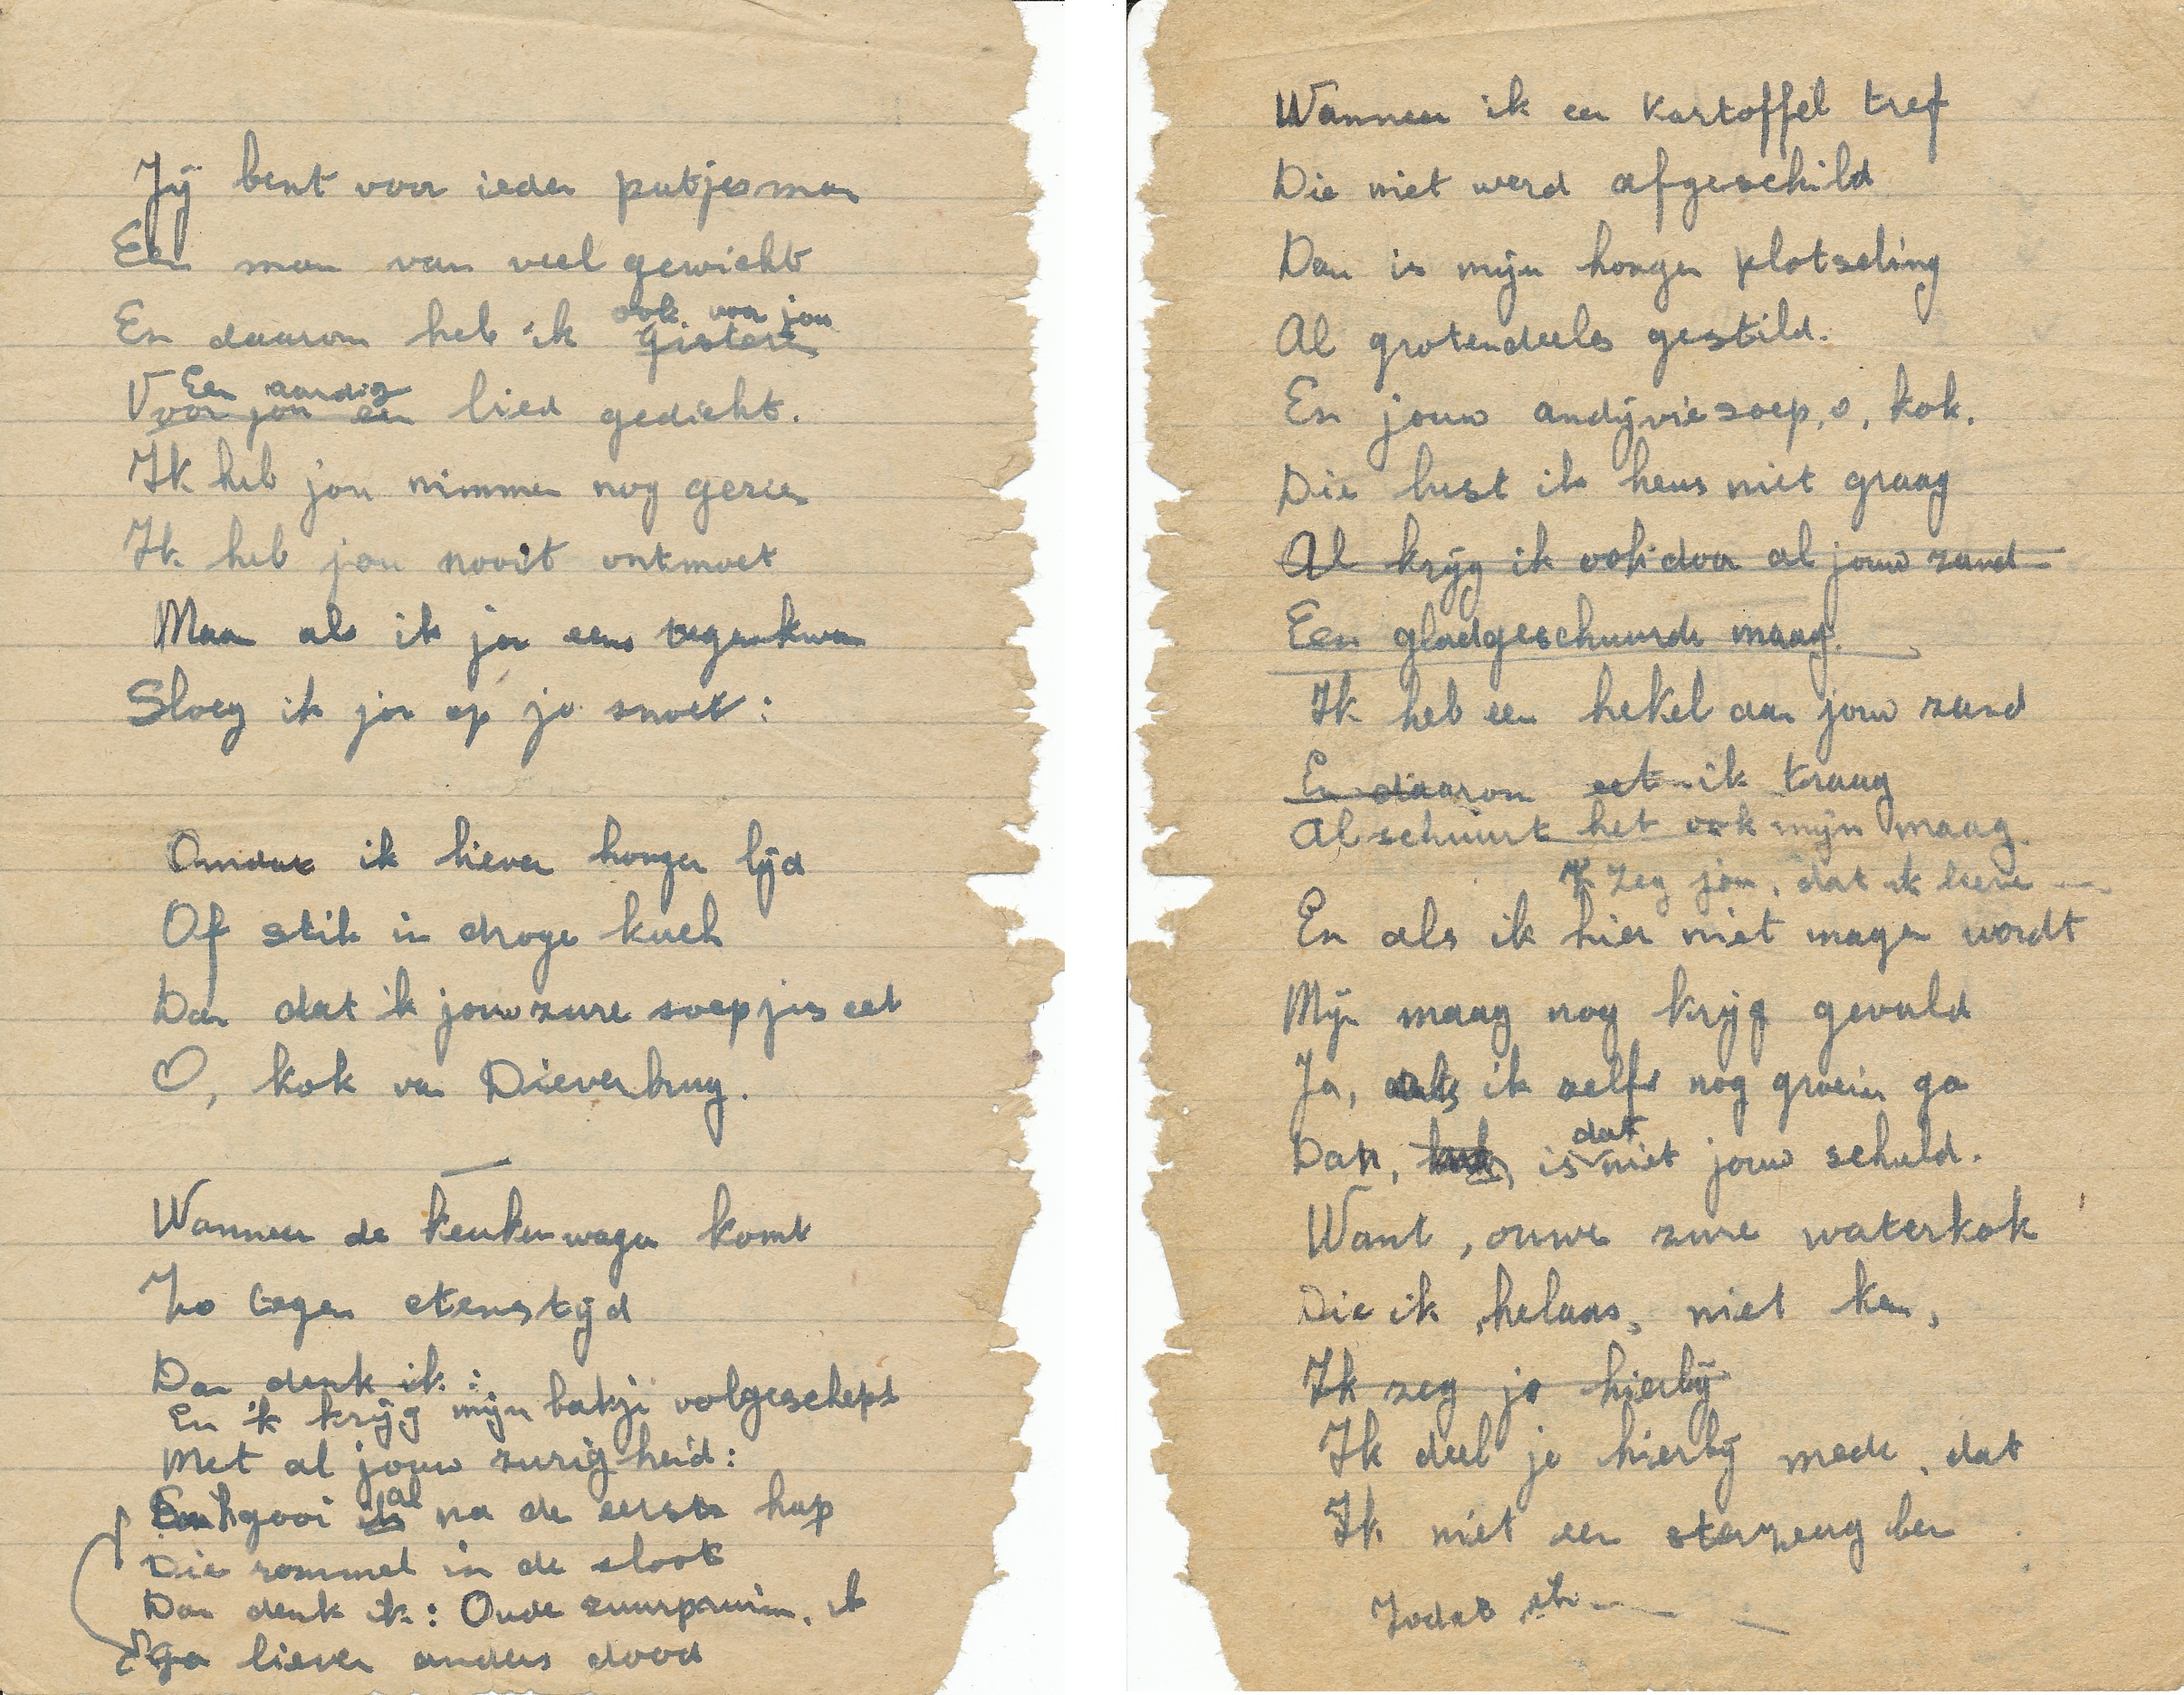 Jij bent voor ieder putjesman
Een man van veel gewicht
ook voor jou
En daarom heb ik gisteren
Een aardig
Voor jou een lied gedicht.
Ik heb jou nimmer nog gezien
Ik heb jou nooit ontmoet
Maar als ik jou eens tegenkwam
Sloeg ik jou op je snoet:
Omdat ik liever honger lijd
Of stik in droge kuch
Dan dat ik jouw zure soepjes eet
O, kok van Dieverbrug.
Wanneer de keukenwagen komt
Zo tegen etenstijd
Dan denk ik:
En ik krijg mijn bakje volgeschept
Met al jouw zurigheid:
al
gooi ik na de eerste hap
Die rommel in de sloot
Dan denk ik: Oude zuurpruim, ik
Ga liever anders dood
Wanneer ik een kartoffel tref
Die niet werd afgeschild
Dan is mijn honger plotseling
Al grotendeels gestild.
En jouw andijviesoep, o, kok.
Die lust ik heus niet graag
Al krijg ik ook door al jouw zand
Een gladgeschuurde maag.
Ik heb een hekel aan jouw zand
En daarom eet ik traag
Al schuurt het ook mijn maag.
Ik zeg jou, dat ik liever
En als ik hier niet mager wordt
Mijn maag nog krijg gevuld
Ja, als ik zelfs nog groeien ga
dat
Dan, is niet jouw schuld.
Want, ouwe zure waterkok
Die ik, helaas, niet ken,
Ik zeg je hierbij
Ik deel je hierbij mede, dat
Ik niet een
ben
Zodat ik